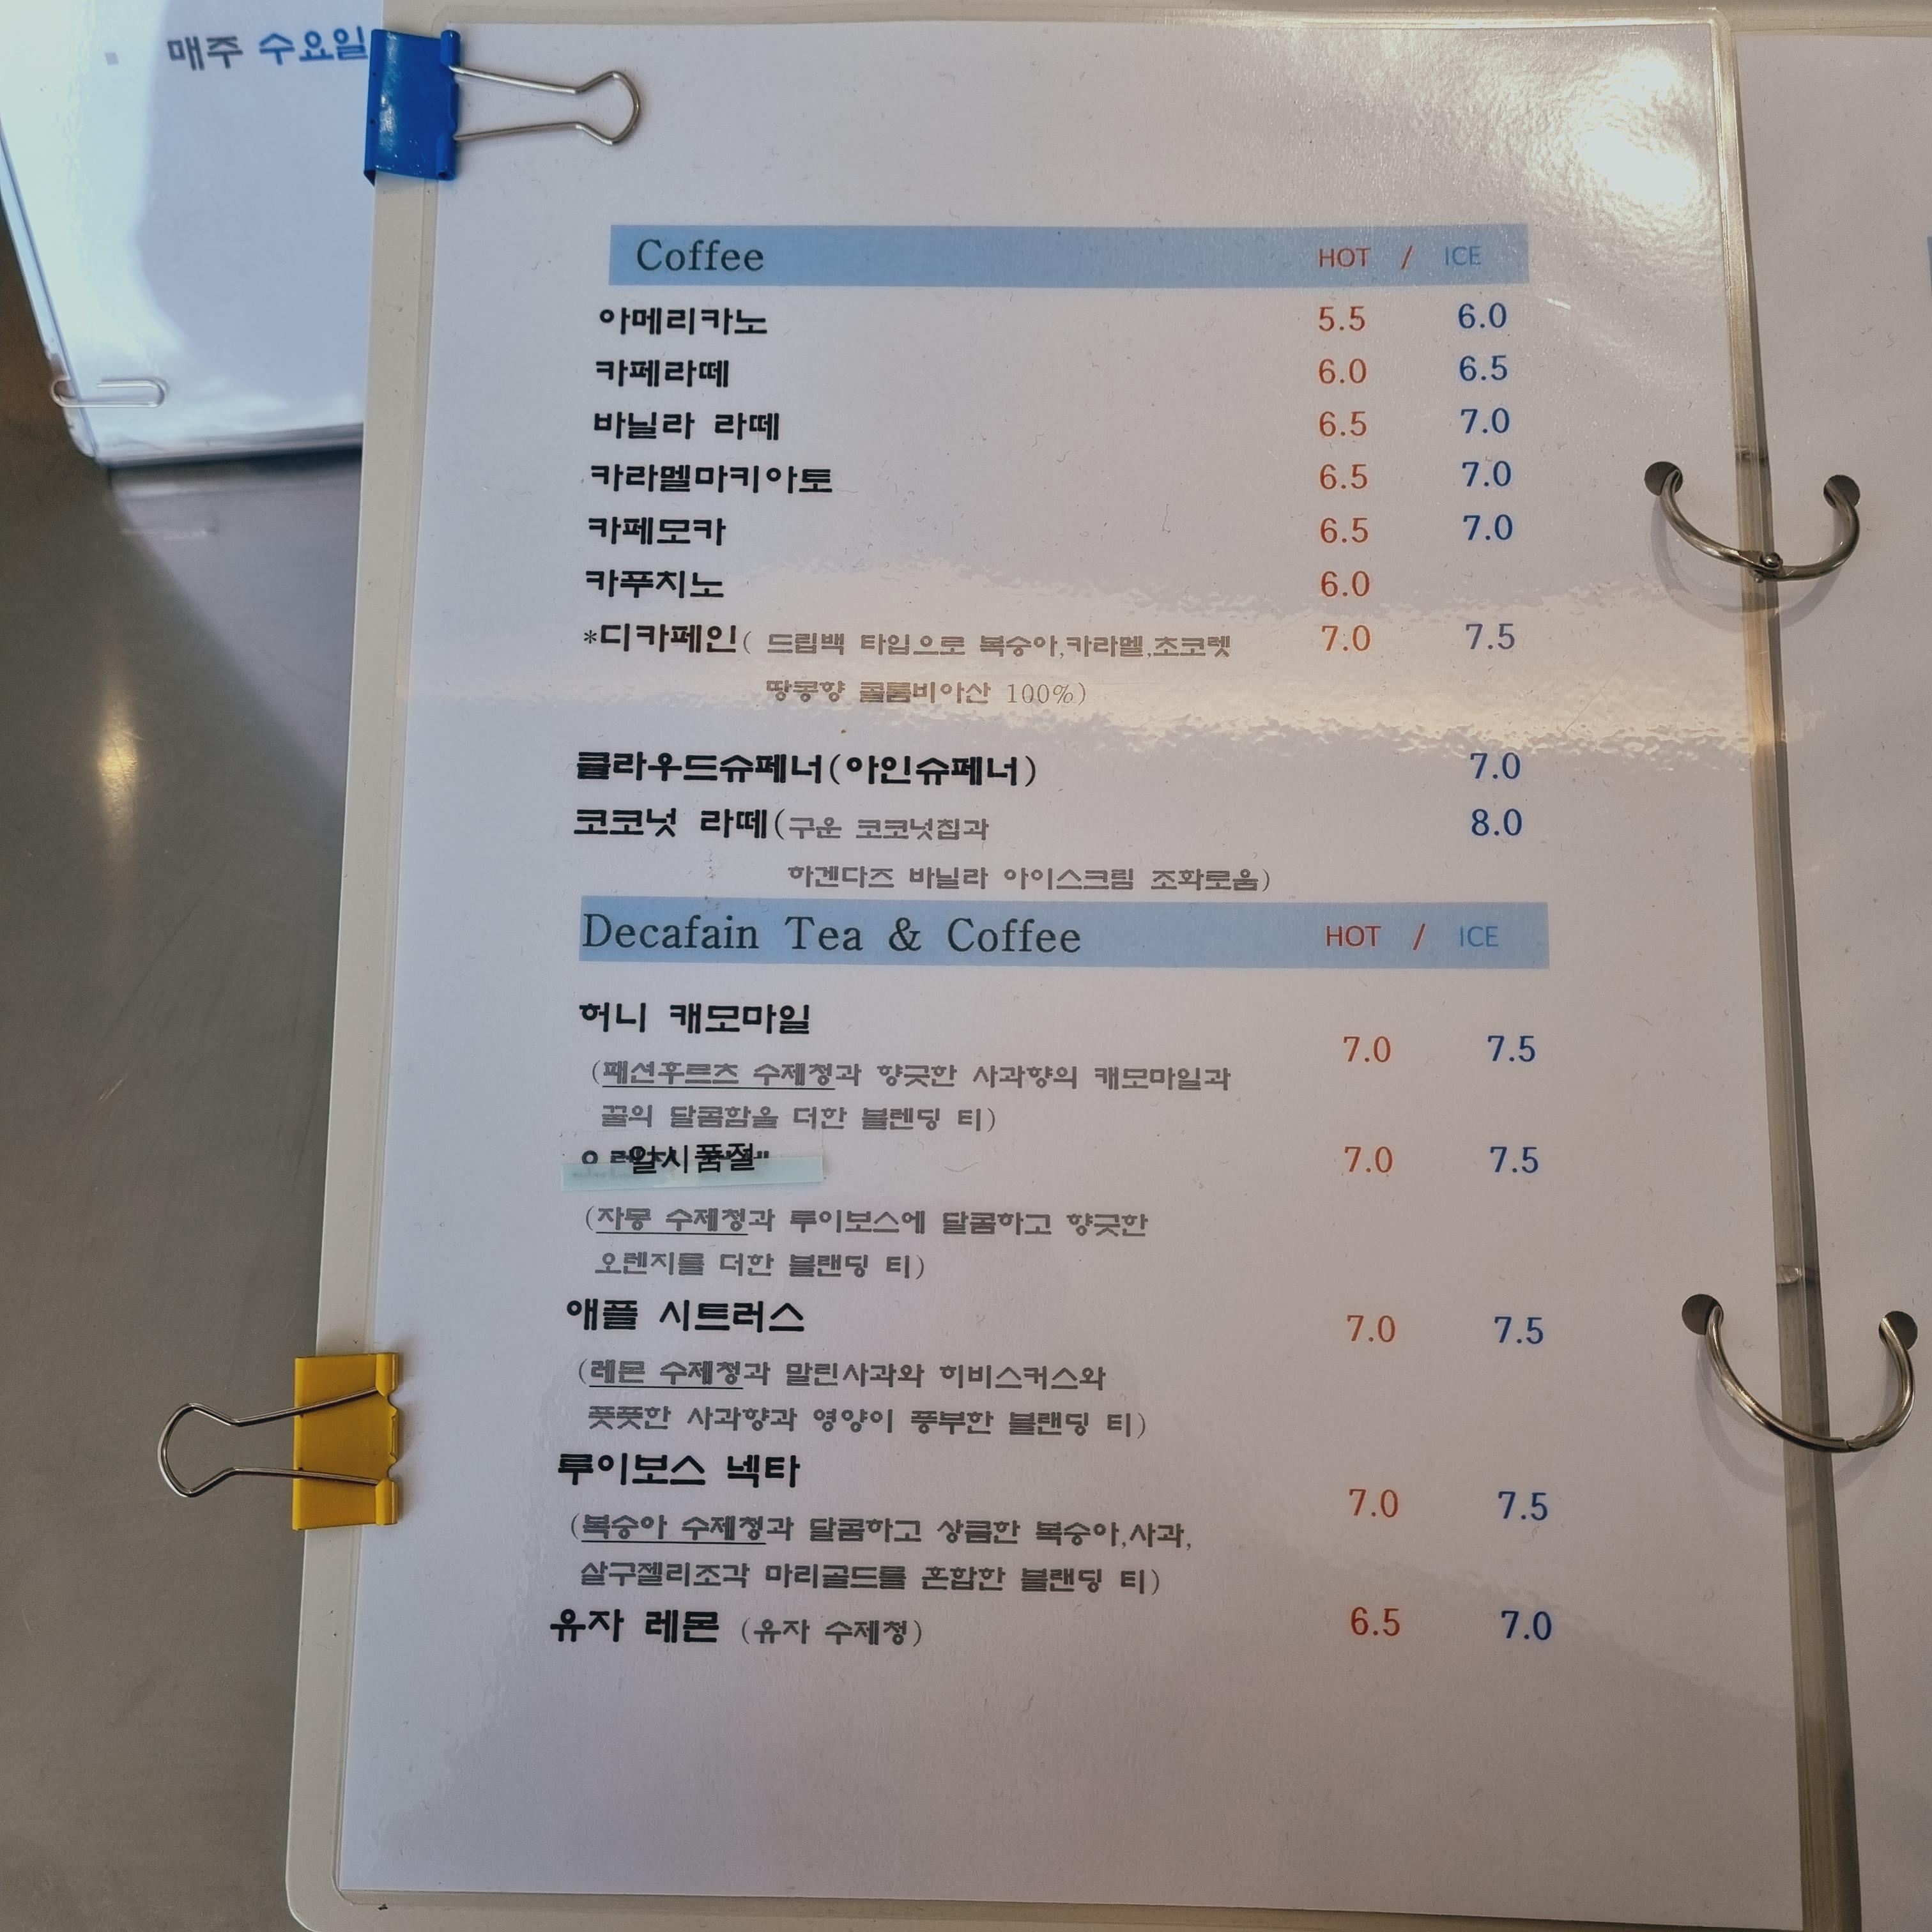 매주 수요일
Coffee HOT / ICE
아메리카노 5.5 6.0
카페라떼 6.0 6.5
바닐라 라떼 6.5 7.0
카라멜마키아토 6.5 7.0
카페모카 6.5 7.0
카푸치노 6.0
*디카페인( 드립백 타입으로 복숭아,카라멜,초코렛 7.0 7.5
땅콩향 콜롬비아산 100%)
클라우드슈페너(아인슈페너) 7.0
코코넛 라떼(구운 코코넛칩과 8.0
하겐다즈 바닐라 아이스크림 조화로움)
Decafain Tea & Coffee HOT / ICE
허니 캐모마일
7.0 7.5
(패션후르츠 수제청과 향긋한 사과향의 캐모마일과
꿀의 달콤함을 더한 블렌딩 티)
일시품절 7.0 7.5
(자몽 수제청과 루이보스에 달콤하고 향긋한
오렌지를 더한 블랜딩 티)
애플 시트러스 7.0 7.5
(레몬 수제청과 말린사과와 히비스커스와
풋풋한 사과향과 영양이 풍부한 블랜딩 티)
루이보스 넥타
7.0 7.5
(복숭아 수제청과 달콤하고 상큼한 복숭아,사과,
살구젤리조각 마리골드를 혼합한 블랜딩 티)
유자 레몬 (유자 수제청) 6.5 7.0